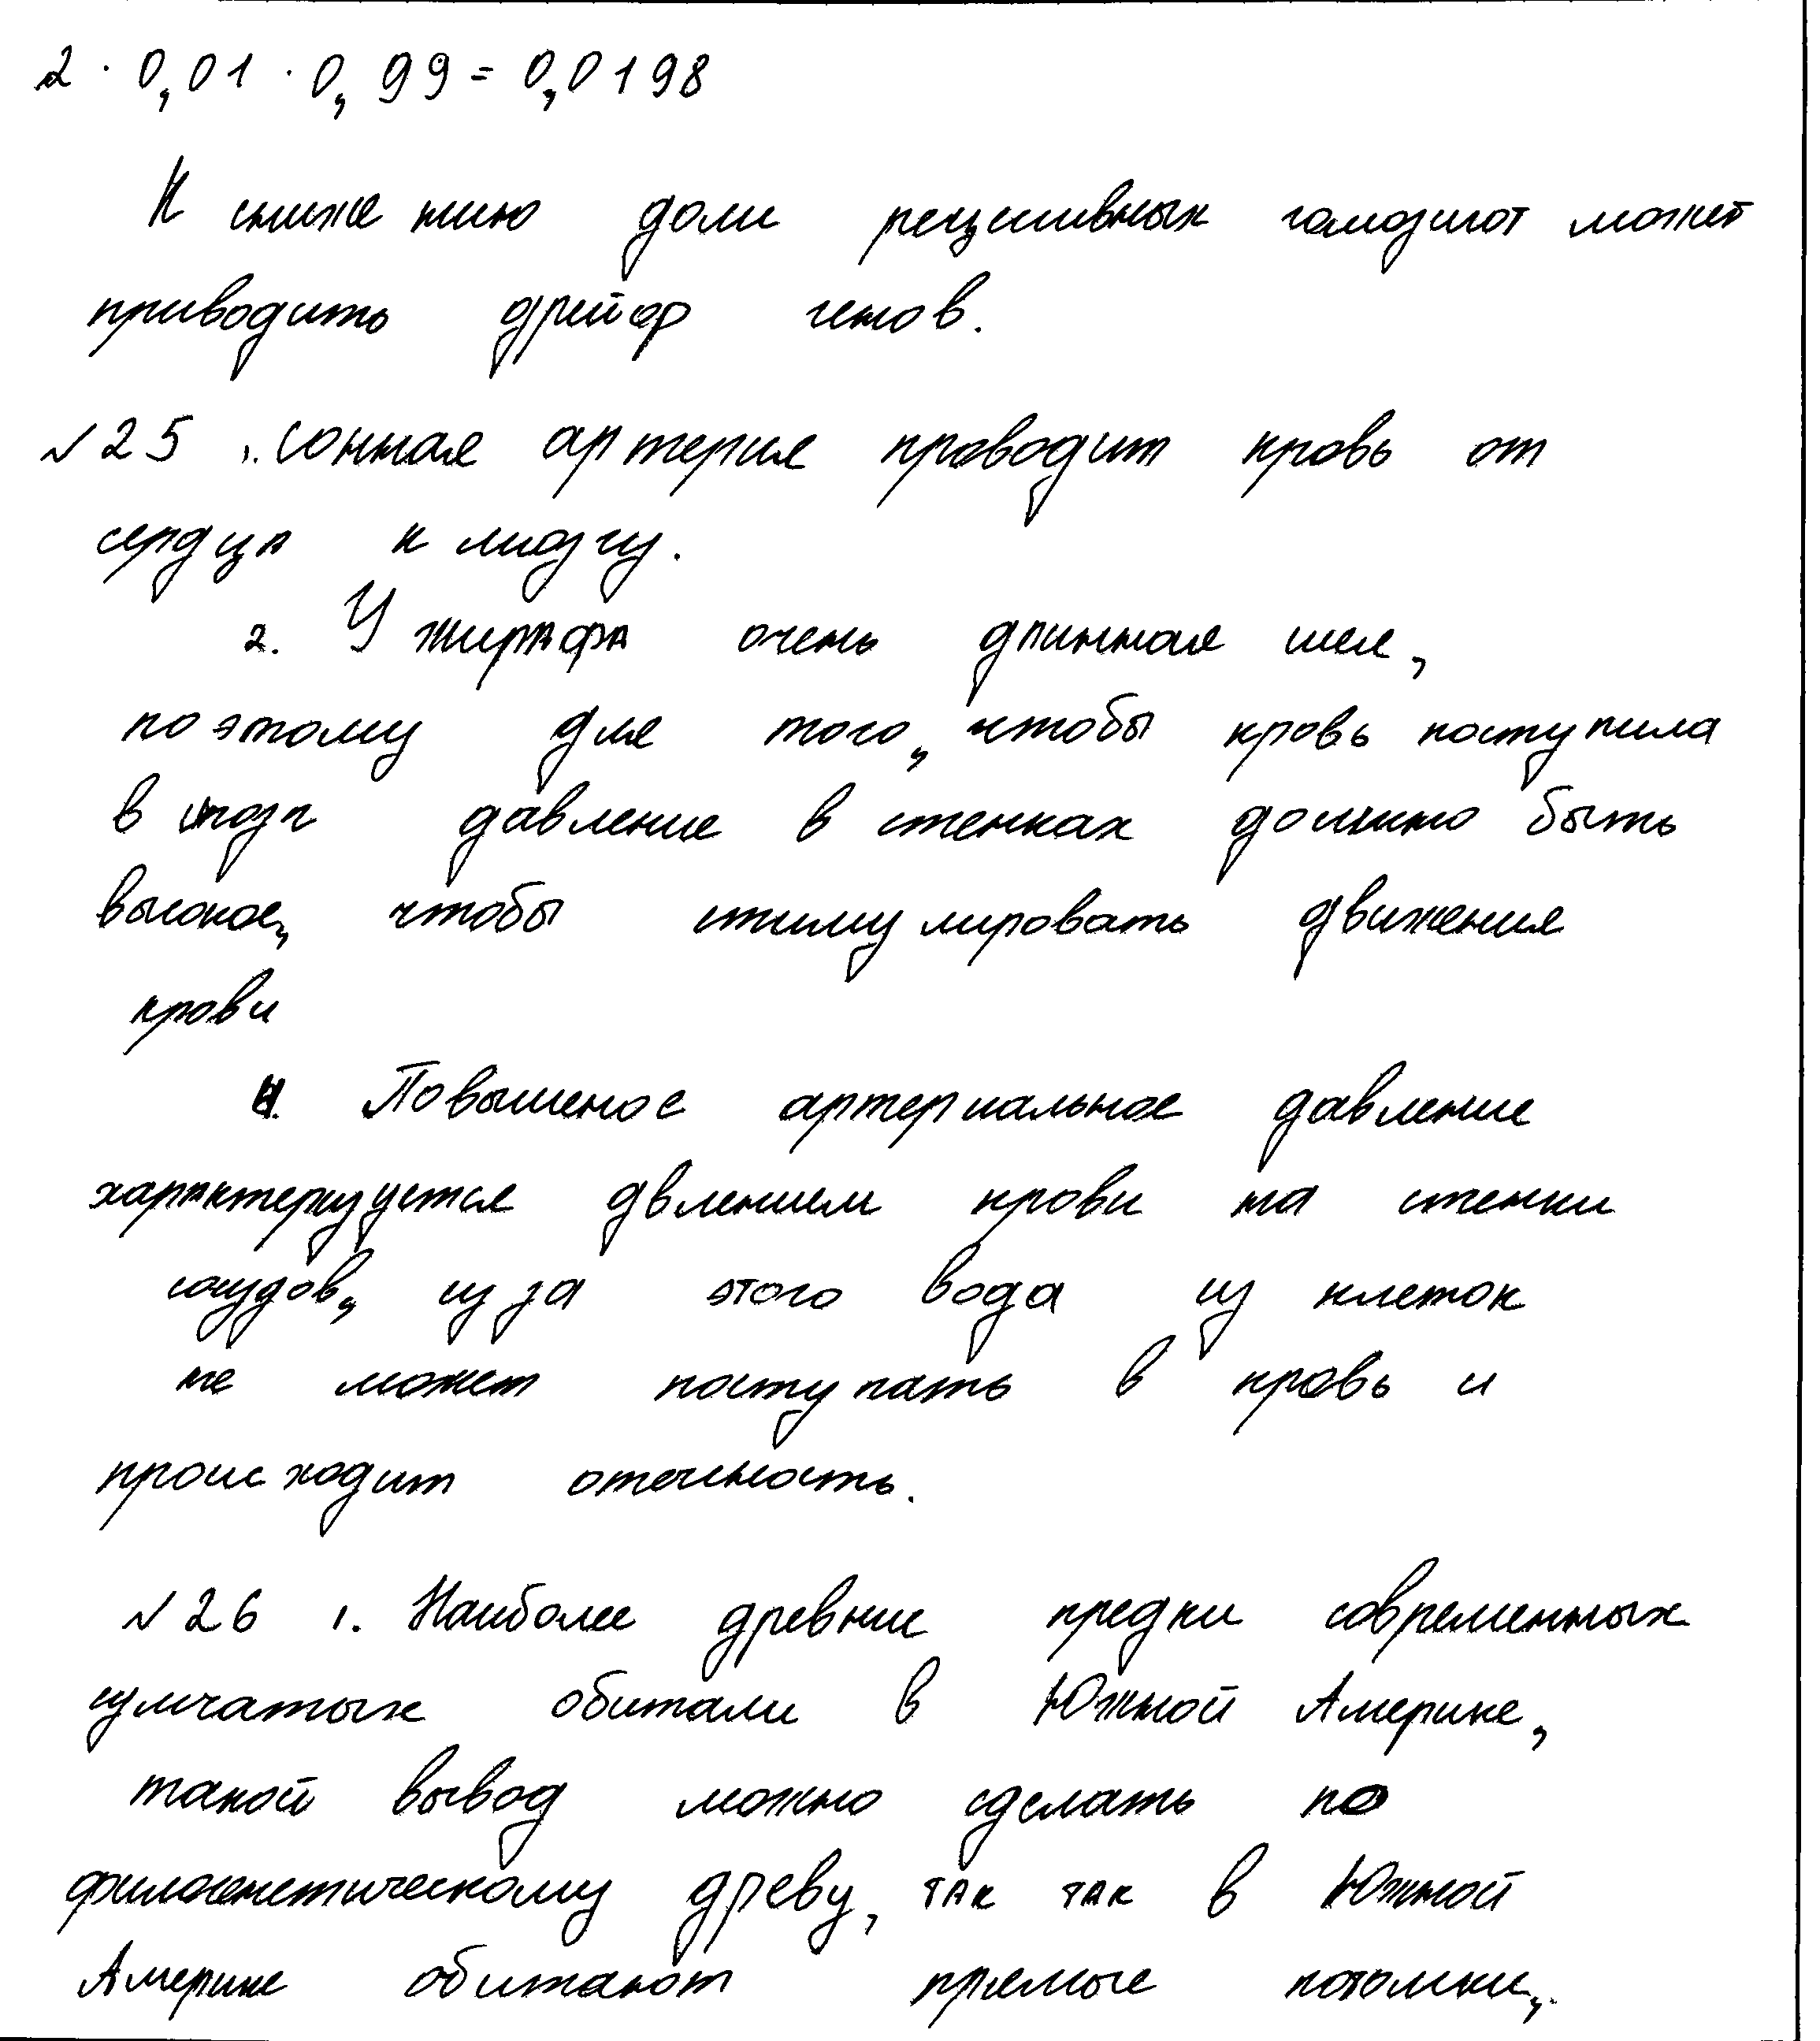 2 · 0,01 · 0,99 = 0,0198
К снижению доли рецессивных гомозигот может
приводить дрейф генов.
№25 1. Сонная артерия проводит кровь от
сердца к мозгу.
2. У жирафа очень длинная шея,
поэтому для того, чтобы кровь поступила
в мозг давление в стенках должно быть
высокое, чтобы стимулировать движения
крови
4. Повышеное артериальное давление
характеризуется двлением крови на стенки
сосудов, из за этого вода из клеток
не может поступать в кровь и
происходит отечность.
№26 1. Наиболее древние предки современных
сумчатых обитали в Южной Америке,
такой вывод можно сделать по
филогенетическому древу, так так в Южной
Америке обитают прямые потомки,